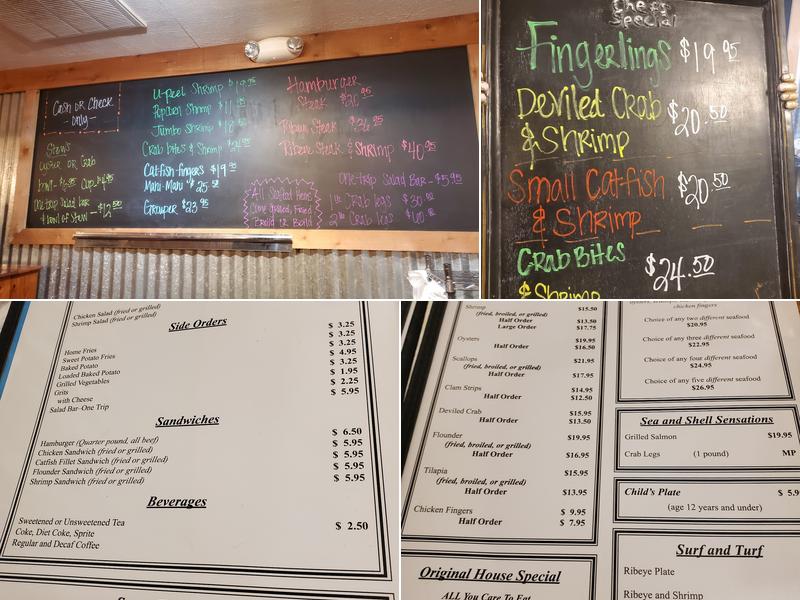 Cash or Check
-only-
Stews
Oyster or Crab
bowl - $6.95 Cup $4.95
One trip Salad bar
& bowl of Stew -
U-peel Shrimp
Popcorn Shrimp
Jumbo Shrimp
Crab bites & Shrimp
Catfish-fingers $19.95
Mahi-Mahi $25.50
Grouper $23.95
Hamburger
Steak
Ribeye Steak
Ribeye Steak & Shrimp $40.95
One-trip Salad Bar - $5.95
1 lb Crab legs $30.00
2 lb Crab legs $60.00
All Seafood Items
Come Grilled, Fried
Broil or Boil
Chef's
Special
Fingerlings $19.95
Deviled Crab
& Shrimp $20.50
Small Catfish
& Shrimp $20.50
Crab Bites
& Shrimp $24.50
Chicken Salad (fried or grilled)
Shrimp Salad (fried or grilled)
Side Orders
Home Fries $ 3.25
Sweet Potato Fries $ 3.25
Baked Potato $ 3.25
Loaded Baked Potato $ 4.95
Grilled Vegetables $ 3.25
Grits $ 1.95
with Cheese $ 2.25
Salad Bar–One Trip $ 5.95
Sandwiches
Hamburger (Quarter pound, all beef) $ 6.50
Chicken Sandwich (fried or grilled) $ 5.95
Catfish Fillet Sandwich (fried or grilled) $ 5.95
Flounder Sandwich (fried or grilled) $ 5.95
Shrimp Sandwich (fried or grilled) $ 5.95
Beverages
Sweetened or Unsweetened Tea
Coke, Diet Coke, Sprite $ 2.50
Regular and Decaf Coffee
Shrimp $15.50
(fried, broiled, or grilled)
Half Order $13.50
Large Order $17.75
Oysters $19.95
Half Order $16.50
Scallops $21.95
(fried, broiled, or grilled)
Half Order $17.95
Clam Strips $14.95
Half Order $12.50
Deviled Crab $15.95
Half Order $13.50
Flounder $19.95
(fried, broiled, or grilled)
Half Order $16.95
Tilapia $15.95
(fried, broiled, or grilled)
Half Order $13.95
Chicken Fingers $ 9.95
Half Order $ 7.95
Original House Special
ALL You Care To Eat
chicken fingers
Choice of any two different seafood
$20.95
Choice of any three different seafood
$22.95
Choice of any four different seafood
$24.95
Choice of any five different seafood
$26.95
Sea and Shell Sensations
Grilled Salmon $19.95
Crab Legs (1 pound) MP
Child's Plate $ 5.9
(age 12 years and under)
Surf and Turf
Ribeye Plate
Ribeye and Shrimp